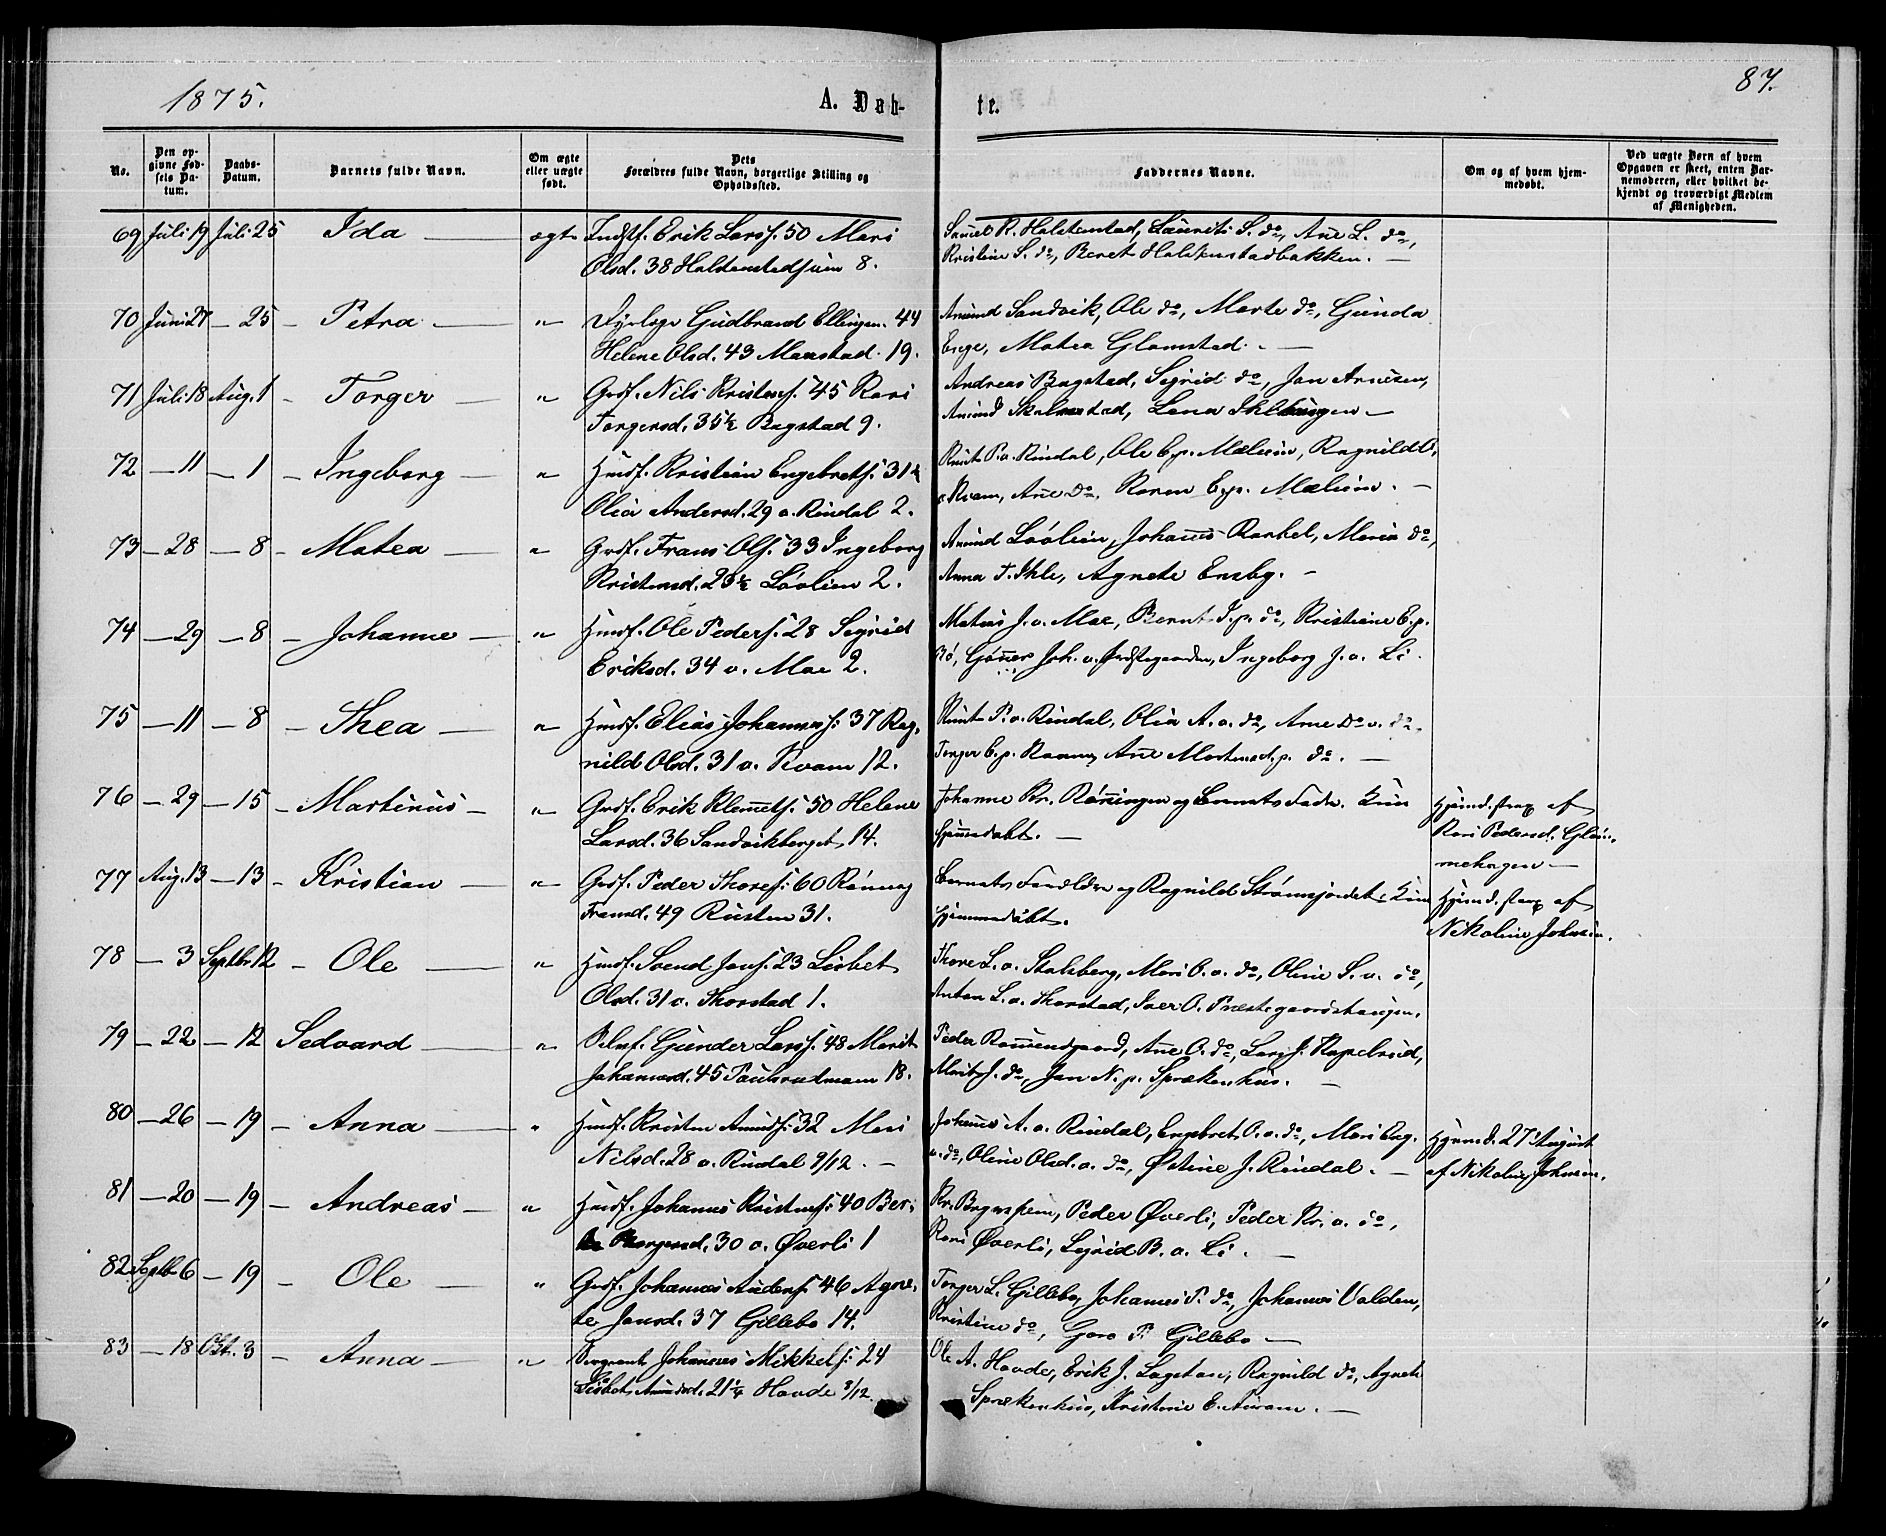 1875.
A. Døb-
te.
87.
No.
Den opgivne Fødsels Datum.
Daabs-Datum.
Barnets fulde Navn.
Om ægte eller uægte født.
Dets Forældres fulde Navn, borgerlige Stilling og Opholdssted.
Faddernes Navne.
Om og af hvem hjemmedøbt.
Ved uægte Børn af hvem Opgaven er skeet, enten Barnemoderen, eller hvilket bekjendt og troværdigt Medlem af Menigheden.
69 Juli 19 Juli 25 Ida ægte Indst. Erik Larss. 50 Mari
Olsd. 38 8.
R. Halstenstad, Laurits S. do, Ane L. do,
Kristine S. do, Beret Halstenstadbakken. —
70 Juni 27 — 25 — Petra — " Gudbrand Ellingsen. 44
Helene Olsd. 43 19.
Amund Sandvik, Ole do, Marte do, Gunda
Enge, Matea Glomstad. —
71 Juli 18 Aug. 1 — Torger — " Grdf. Nils Kristens. 45 Kari
Torgersd. 35½ Bagstad 9.
Andreas Bagstad, Sigrid do, Jan Arnesen,
Amund Skalmstad, Lena —
72 — 11 — 1 — Ingeborg — " Husf. Kristian Engebrets. 31
Olia Andersd. 29 o. Rindal 2.
Knut P. o. Rindal, Ole E.p. Mælum, Ragnild
Kvam, Ane do, Karen E.p. Mælum. —
73 — 28 — 8 — Matea — " Grdf. Frans Ols. 33 Ingeborg
Kristensd. 23½ Løolien 2.
Amund Løolien, Johannes Dankel, Maria do,
Anna T. Ihle, Agnete Ensby. —
74 — 29 — 8 — Johanne — " Husf. Ole Peders. 28 Sigrid
Eriksd. 34 o. Moe 2.
Matias J. o. Moe, Bernt I.p. do, Kristiane E.p.
Bø, Joh. o. Ingeborg J. o. Li.
75 — 11 — 8 — Thea — " Husf. Elias Johanness. 37 Rag-
nild Olsd. 31 o. Kvam 12.
Knut P. o. Rindal, Olia A. o. do, Ane do. o. do,
Torger E.p. Kvam, Ane Mortensd. p. do. —
76 — 29 — 15 — Martinus — " Grdf. Erik Klemets. 50 Helene
Larsd. 36 Sandvikberget 14.
Johanne Kr. Rønningen og Barnets Fader. Kun
hjemmedøbt. —
Hjemd. strax af
Kari Pedersd. Glom-
mehagen —
77 Aug. 13 — 13 — Kristian — " Grdf. Peder Thores. 60 Rønnaug
Fransd. 49 Rusten 31.
Barnets Forældre og Ragnild Strømsjordet. Kun
hjemmedøbt.
Hjemd. strax af
Nikoline Johnsen.
78 — 3 Septbr 12 — Ole — " Husf. Svend Jons. 23 Lisbet
Olsd. 31 o. Thorstad 1.
Thore L. o. Stalsberg, Mari O. o. do, Oline S. o. do,
Anton L. o. Thorstad, Iver O. Prestegaardshaugen.
79 — 22 — 12 Sedvard — " Gunder Larss. 48 Marit
Johannesd. 45 18.
Peder Ane O. do, Lars J. Kapelrud,
Marit J. do, Jan N. p. Sprækenhus. —
80 — 26 — 19 — Anna — " Husf. Kristen Amunds. 32 Mari
Nilsd. 28 o. Rindal 9/12. —
Johannes A. o. Rindal, Engebret O. o. do, Mari Eng.
o. do, Oline Olsd. o. do, Østine J. Rindal. —
Hjemd. 27 August
af Nikoline Johnsen.
81 — 20 — 19 — Andreas — " Husf. Johannes Kristens. 40 Ber-
30 o. Øverli 1
Kr. Peder Øverli, Peder Kr. o. do,
Kari Øverli, Sigrid B. o. Li. —
82 Septbr 6 — 19 — Ole — " Grdf. Johannes Anders. 46 Agne-
te Jansd. 37 Gillebo 14.
Torger L. Gillebo, Johannes P. do, Johannes Volden,
Kristine do, Goro P. Gillebo —
83 — 18 Okt. 3 — Anna — " Sergeant Johannes Mikkels. 24
Lisbet Amundsd. 21¼ Hovde 9/12.
Ole A. Hovde, Erik J. Ragnild do, Agnete
Sprækenhus, Kristine E. —